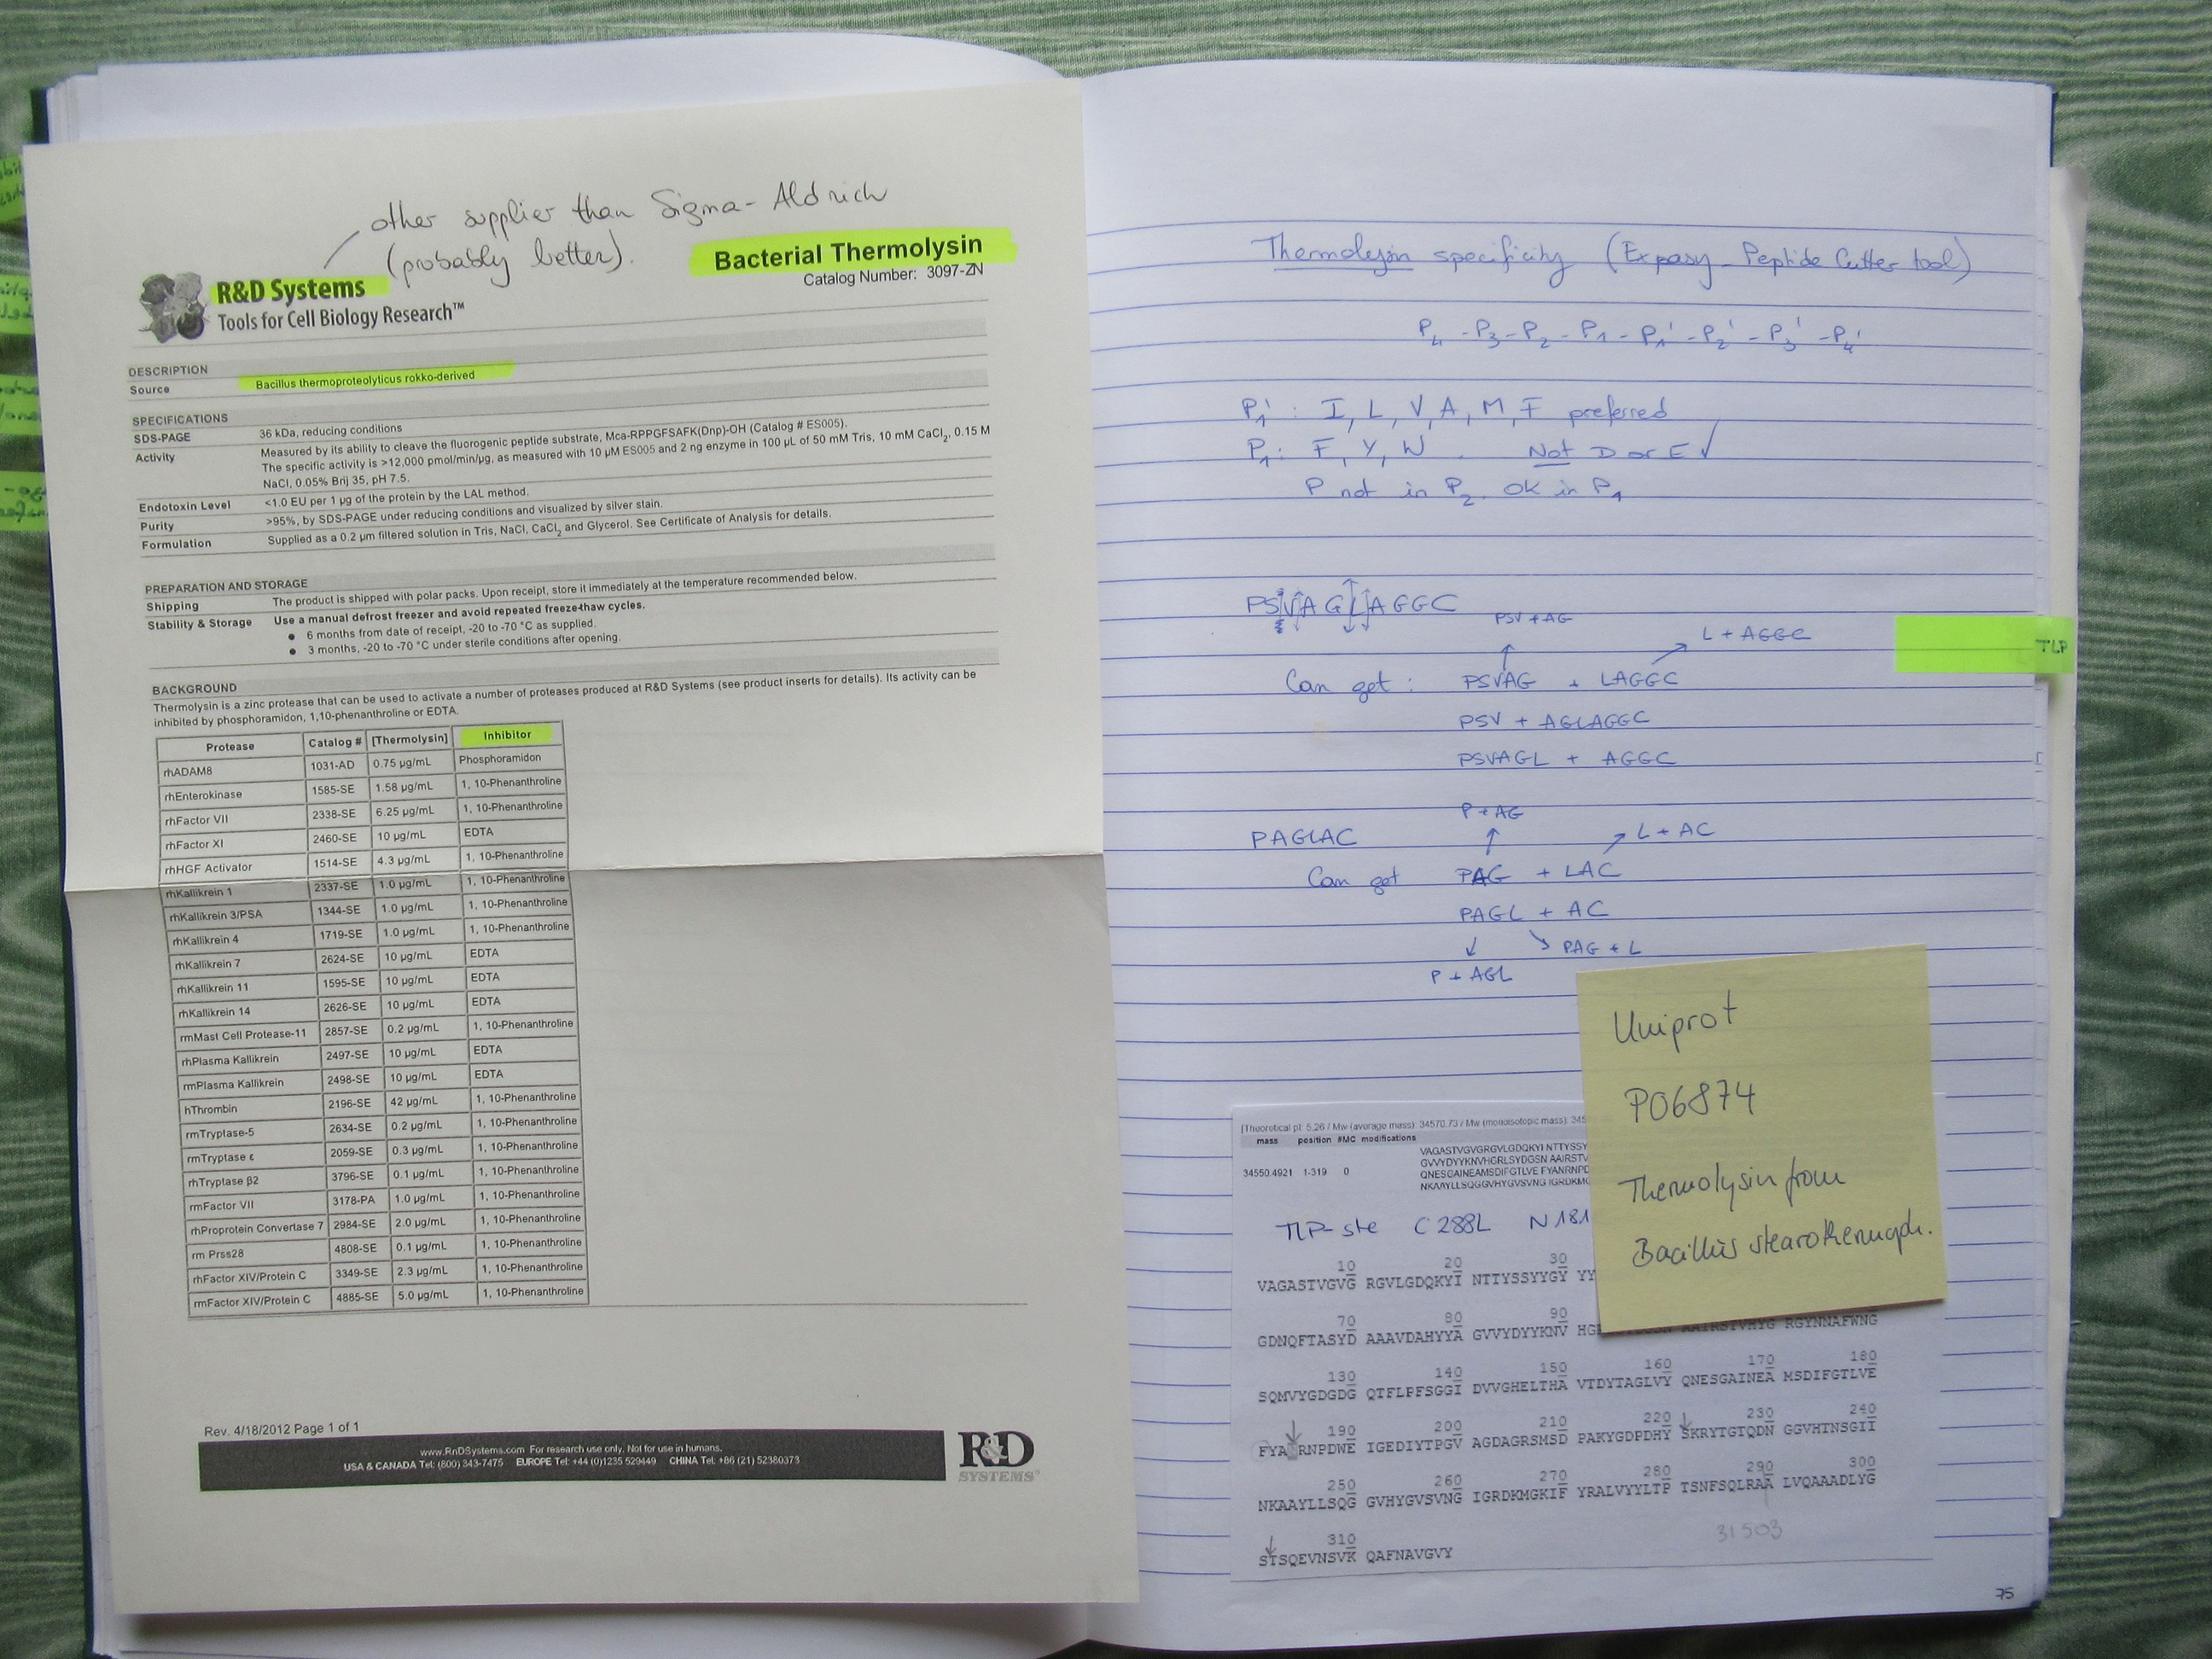 other supplier than Sigma-Aldrich
(probably better).
Bacterial Thermolysin
Catalog Number: 3097-ZN
R&D Systems
Tools for Cell Biology Research™
DESCRIPTION
Source Bacillus thermoproteolyticus rokko-derived
SPECIFICATIONS
SDS-PAGE 36 kDa, reducing conditions
Activity Measured by its ability to cleave the fluorogenic peptide substrate, Mca-RPPGFSAFK(Dnp)-OH (Catalog # ES005).
The specific activity is >12,000 pmol/min/µg, as measured with 10 µM ES005 and 2 ng enzyme in 100 µL of 50 mM Tris, 10 mM CaCl2, 0.15 M
NaCl, 0.05% Brij 35, pH 7.5.
Endotoxin Level <1.0 EU per 1 µg of the protein by the LAL method.
Purity >95%, by SDS-PAGE under reducing conditions and visualized by silver stain.
Formulation Supplied as a 0.2 µm filtered solution in Tris, NaCl, CaCl2 and Glycerol. See Certificate of Analysis for details.
PREPARATION AND STORAGE
Shipping The product is shipped with polar packs. Upon receipt, store it immediately at the temperature recommended below.
Stability & Storage Use a manual defrost freezer and avoid repeated freeze-thaw cycles.
● 6 months from date of receipt, -20 to -70 °C as supplied.
● 3 months, -20 to -70 °C under sterile conditions after opening.
BACKGROUND
Thermolysin is a zinc protease that can be used to activate a number of proteases produced at R&D Systems (see product inserts for details). Its activity can be
inhibited by phosphoramidon, 1,10-phenanthroline or EDTA.
Protease Catalog # [Thermolysin] Inhibitor
rhADAM8 1031-AD 0.75 µg/mL Phosphoramidon
rhEnterokinase 1585-SE 1.58 µg/mL 1, 10-Phenanthroline
rhFactor VII 2338-SE 6.25 µg/mL 1, 10-Phenanthroline
rhFactor XI 2460-SE 10 µg/mL EDTA
rhHGF Activator 1514-SE 4.3 µg/mL 1, 10-Phenanthroline
rhKallikrein 1 2337-SE 1.0 µg/mL 1, 10-Phenanthroline
rhKallikrein 3/PSA 1344-SE 1.0 µg/mL 1, 10-Phenanthroline
rhKallikrein 4 1719-SE 1.0 µg/mL 1, 10-Phenanthroline
rhKallikrein 7 2624-SE 10 µg/mL EDTA
rhKallikrein 11 1595-SE 10 µg/mL EDTA
rhKallikrein 14 2626-SE 10 µg/mL EDTA
rmMast Cell Protease-11 2857-SE 0.2 µg/mL 1, 10-Phenanthroline
rhPlasma Kallikrein 2497-SE 10 µg/mL EDTA
rmPlasma Kallikrein 2498-SE 10 µg/mL EDTA
hThrombin 2196-SE 42 µg/mL 1, 10-Phenanthroline
rmTryptase-5 2634-SE 0.2 µg/mL 1, 10-Phenanthroline
rmTryptase ε 2059-SE 0.3 µg/mL 1, 10-Phenanthroline
rhTryptase β2 3796-SE 0.1 µg/mL 1, 10-Phenanthroline
rmFactor VII 3178-PA 1.0 µg/mL 1, 10-Phenanthroline
rhProprotein Convertase 7 2984-SE 2.0 µg/mL 1, 10-Phenanthroline
rm Prss28 4808-SE 0.1 µg/mL 1, 10-Phenanthroline
rhFactor XIV/Protein C 3349-SE 2.3 µg/mL 1, 10-Phenanthroline
rmFactor XIV/Protein C 4885-SE 5.0 µg/mL 1, 10-Phenanthroline
Rev. 4/18/2012 Page 1 of 1
www.RnDSystems.com For research use only. Not for use in humans.
USA & CANADA Tel: (800) 343-7475 EUROPE Tel: +44 (0)1235 529449 CHINA Tel: +86 (21) 52380373
R&D
SYSTEMS
Thermolysin specificity (Expasy - Peptide Cutter tool)
P4 - P3 - P2 - P1 - P1' - P2' - P3' - P4'
P1' : I, L, V, A, M, F preferred
P1 : F, Y, W. Not D or E √
P not in P2. OK in P1
PSVAGLAGGC
PSV + AG
L + AGGC
TLP
Can get : PSVAG + LAGGC
PSV + AGLAGGC
PSVAGL + AGGC
P + AG
PAGLAC
L + AC
Can get PAG + LAC
PAGL + AC
PAG + L
P + AGL
Uniprot
P06874
Thermolysin from
Bacillus stearothermoph.
[Theoretical pI: 5.26 / Mw (average mass): 34570.73 / Mw (monoisotopic mass): 345
mass position #MC modifications
VAGASTVGVGRGVLGDQKYI NTTYSSY
GVVYDYYKNVHGRLSYDGSN AAIRSTV
34550.4921 1-319 0 QNESGAINEAMSDIFGTLVE FYANRNPD
NKAAYLLSQGGVHYGVSVNG IGRDKMG
TLP-ste C288L N181
10 20 30
VAGASTVGVG RGVLGDQKYI NTTYSSYYGY YY
70 80 90
GDNQFTASYD AAAVDAHYYA GVVYDYYKNV HG RGYNNAFWNG
130 140 150 160 170 180
SQMVYGDGDG QTFLPFSGGI DVVGHELTHA VTDYTAGLVY QNESGAINEA MSDIFGTLVE
190 200 210 220 230 240
FYA RNPDWE IGEDIYTPGV AGDAGRSMSD PAKYGDPDHY SKRYTGTQDN GGVHTNSGII
250 260 270 280 290 300
NKAAYLLSQG GVHYGVSVNG IGRDKMGKIF YRALVYYLTP TSNFSQLRAA LVQAAADLYG
31503
310
STSQEVNSVK QAFNAVGVY
75